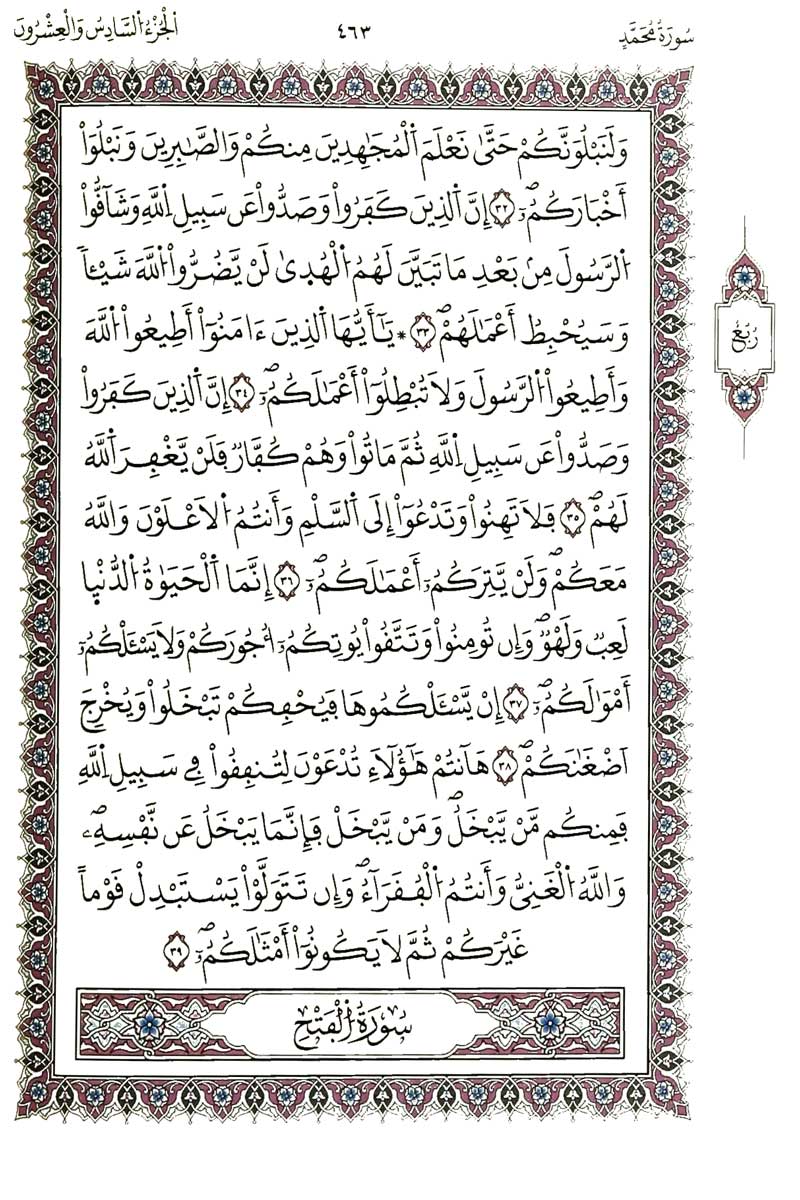 سُورَةُ مُحَمَّدٍ
٤٦٣
الْجُزْءُ السَّادِسُ وَالْعِشْرُونَ
وَلَنَبْلُوَنَّكُمْ حَتَّىٰ نَعْلَمَ اَ۬لْمُجَٰهِدِينَ مِنكُمْ وَالصَّٰبِرِينَ وَنَبْلُوَاْ
أَخْبَارَكُمُۥٓۖ ٣٢ إِنَّ اَ۬لذِينَ كَفَرُواْ وَصَدُّواْ عَن سَبِيلِ اِ۬للَّهِ وَشَآقُّواْ
اُ۬لرَّسُولَ مِنۢ بَعْدِ مَا تَبَيَّنَ لَهُمُ اُ۬لْهُد۪يٰ لَنْ يَّضُرُّواْ اُ۬للَّهَ شَيْـٔاٗ
وَسَيُحْبِطُ أَعْمَٰلَهُمْۖ ٣٣ ۞ يَٰٓأَيُّهَا اَ۬لذِينَ ءَامَنُوٓاْ أَطِيعُواْ اُ۬للَّهَ
وَأَطِيعُواْ اُ۬لرَّسُولَ وَلَا تُبْطِلُوٓاْ أَعْمَٰلَكُمُۥٓۖ ٣٤ إِنَّ اَ۬لذِينَ كَفَرُواْ
وَصَدُّواْ عَن سَبِيلِ اِ۬للَّهِ ثُمَّ مَاتُواْ وَهُمْ كُفَّارٞ فَلَنْ يَّغْفِرَ اَ۬للَّهُ
لَهُمْۖ ٣٥ فَلَا تَهِنُواْ وَتَدْعُوٓاْ إِلَى اَ۬لسَّلْمِ وَأَنتُمُ اُ۬لَاعْلَوْنَ وَاللَّهُ
مَعَكُمْۖ وَلَنْ يَّتِرَكُمُۥٓ أَعْمَٰلَكُمُۥٓۖ ٣٦ إِنَّمَا اَ۬لْحَيَوٰةُ اُ۬لدُّنْي۪ا
لَعِبٞ وَلَهْوٞۖ وَإِن تُومِنُواْ وَتَتَّقُواْ يُوتِكُمُۥٓ أُجُورَكُمْ وَلَا يَسْـَٔلْكُمُۥٓ
أَمْوَٰلَكُمُۥٓۖ ٣٧ إِنْ يَّسْـَٔلْكُمُوهَا فَيُحْفِكُمْ تَبْخَلُواْ وَيُخْرِجَ
اَضْغَٰنَكُمْۖ ٣٨ هَآنتُمْ هَٰٓؤُلَآءِ تُدْعَوْنَ لِتُنفِقُواْ فِے سَبِيلِ اِ۬للَّهِ
فَمِنكُم مَّنْ يَّبْخَلُۖ وَمَنْ يَّبْخَلْ فَإِنَّمَا يَبْخَلُ عَن نَّفْسِهِۦۖ
وَاللَّهُ اُ۬لْغَنِيُّ وَأَنتُمُ اُ۬لْفُقَرَآءُۖ وَإِن تَتَوَلَّوْاْ يَسْتَبْدِلْ قَوْماً
غَيْرَكُمْ ثُمَّ لَا يَكُونُوٓاْ أَمْثَٰلَكُمُۥٓۖ ٣٩
رُبُعُ
سُورَةُ اُ۬لْفَتْحِ